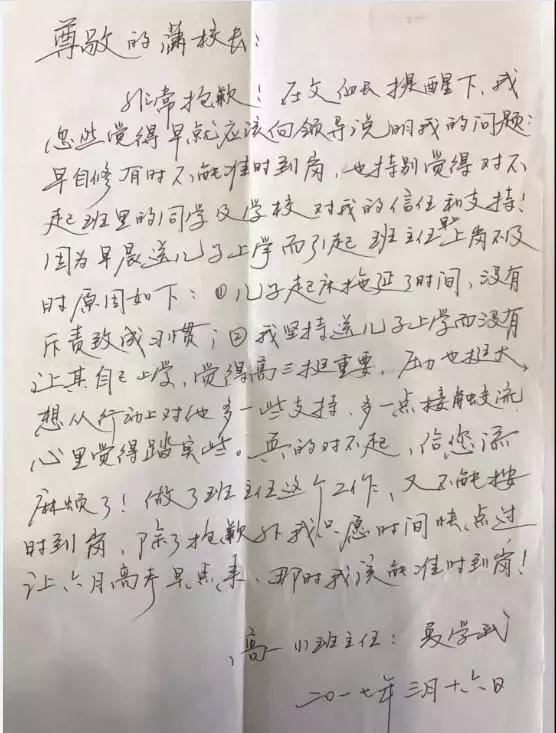 尊敬的潇校长:
非常抱歉!在文 提醒下,我
忽然觉得早就应该向领导说明我的问题:
早自修有时不能准时到岗,也特别觉得对不
起班里的同学及学校对我的信任和支持!
因为早晨送儿子上学而引起班主任早上岗不及
时原因如下:①儿子起床拖延了时间,没有
斥责致成习惯;②我坚持送儿子上学而没有
让其自己上学,觉得高三挺重要,压力也挺大,
想从行动上对他多一些支持、多一点接触交流
心里觉得踏实些。真的对不起,信您添
麻烦了!做了班主任这个工作,又不能按
时到岗,除了抱歉外我只愿时间快点过,
让六月高考早点来,那时我该能准时到岗!
高一(1)班主任:夏学武
二〇一七年三月十六日